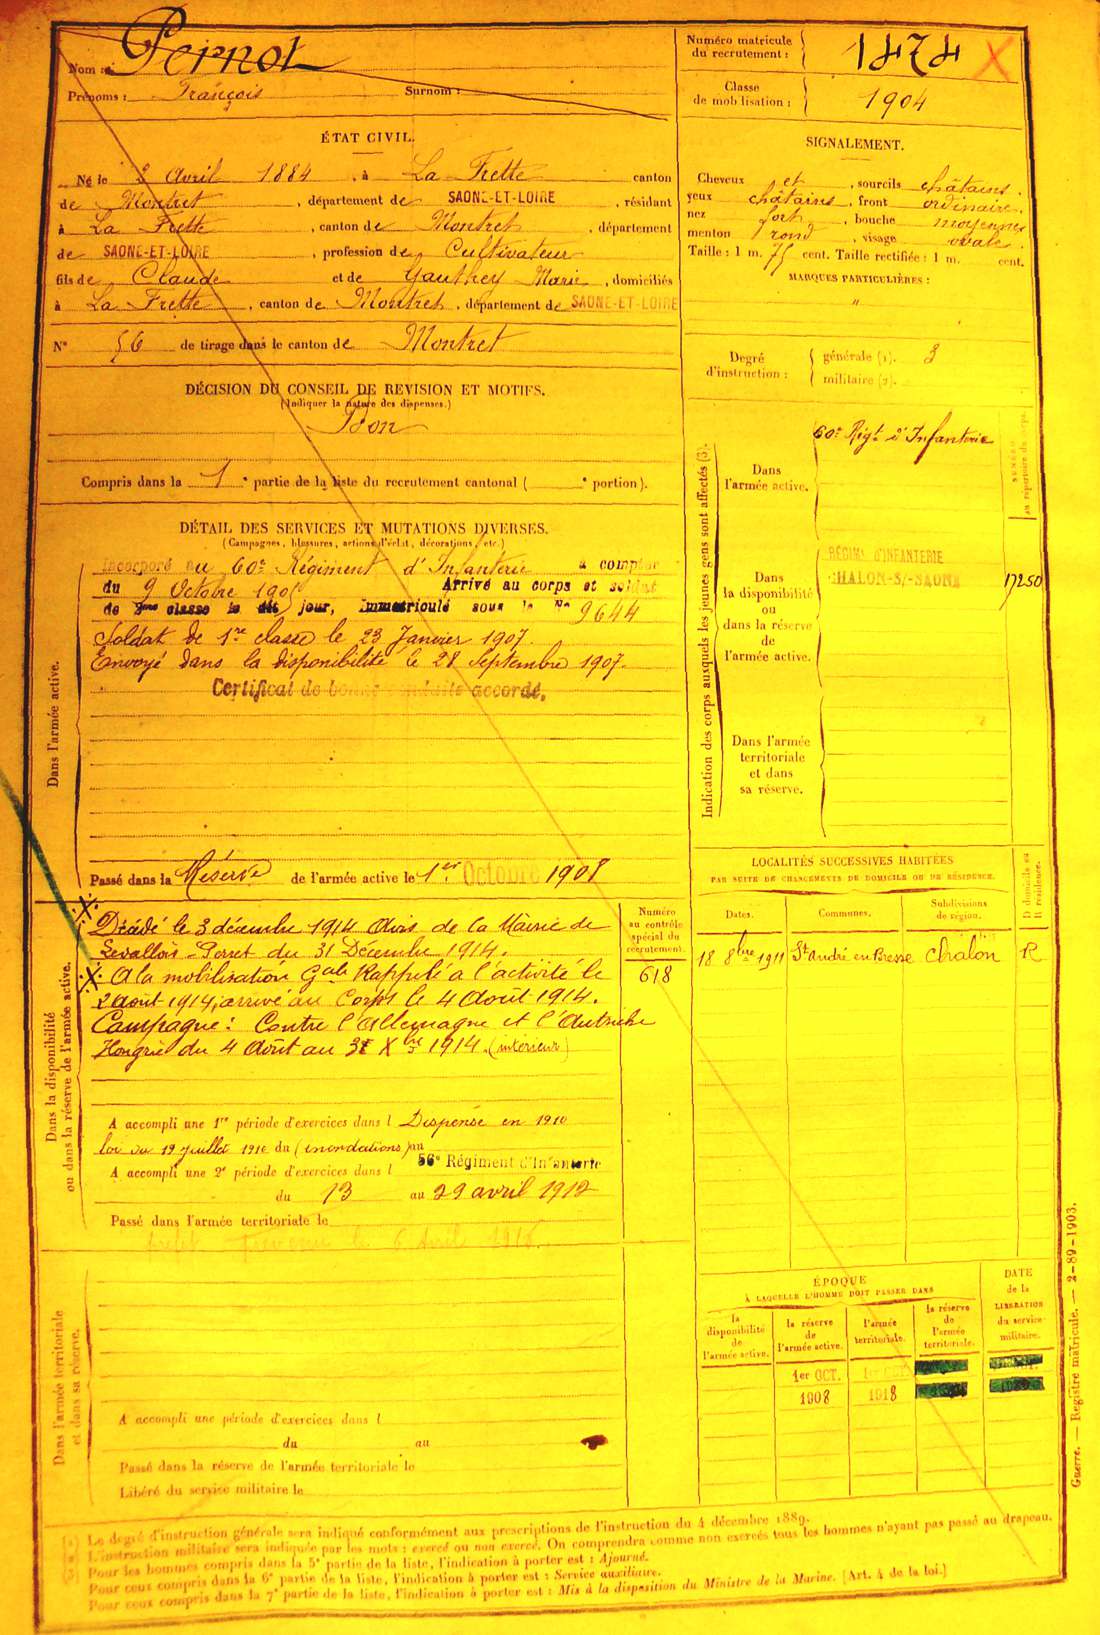 Nom : Pernot
Prénoms : François Surnom :
Numéro matricule du recrutement : 1474 X
Classe de mobilisation : 1904
ÉTAT CIVIL.
Né le 2 Avril 1884, à La Frette canton
de Montret, département de SAONE-ET-LOIRE, résidant
à La Frette, canton de Montret, département
de SAONE-ET-LOIRE, profession de Cultivateur
fils de Claude et de Gauthey Marie, domiciliés
à La Frette, canton de Montret, département de SAONE-ET-LOIRE
N° 56 de tirage dans le canton de Montret
SIGNALEMENT.
Cheveux et, sourcils châtains.
yeux châtains, front ordinaire,
nez fort, bouche moyenne,
menton rond, visage ovale.
Taille : 1 m. 75 cent. Taille rectifiée : 1 m. cent.
MARQUES PARTICULIÈRES :
"
Degré d'instruction :
générale (1). 3
militaire (2).
DÉCISION DU CONSEIL DE REVISION ET MOTIFS.
(Indiquer la nature des dispenses.)
Bon
Compris dans la 1e partie de la liste du recrutement cantonal ( e portion).
DÉTAIL DES SERVICES ET MUTATIONS DIVERSES.
(Campagnes, blessures, actions d'éclat, décorations, etc.)
Dans l'armée active.
Incorporé au 60e Régiment d'Infanterie à compter
du 9 Octobre 1905 Arrivé au corps et soldat
de 2me classe le dit jour, Immatriculé sous le No 9644
Soldat de 1re classe le 23 Janvier 1907.
Envoyé dans la disponibilité le 28 Septembre 1907.
Certificat de bonne conduite accordé.
Passé dans la Réserve de l'armée active le 1er Octobre 1908
Indication des corps auxquels les jeunes gens sont affectés (3).
NUMÉRO au répertoire du corps.
Dans l'armée active.
60e Régt d'Infanterie
Dans la disponibilité ou dans la réserve de l'armée active.
RÉGIMt D'INFANTERIE
CHALON-S/-SAONE 17250
Dans l'armée territoriale et dans sa réserve.
LOCALITÉS SUCCESSIVES HABITÉES
PAR SUITE DE CHANGEMENTS DE DOMICILE OU DE RÉSIDENCE.
Dates. Communes. Subdivisions de région. D domicile ou R résidence.
18 8bre 1911 St André en Bresse Chalon R
Dans la disponibilité ou dans la réserve de l'armée active.
Numéro au contrôle spécial du recrutement.
618
Décédé le 3 décembre 1914 Avis de la Mairie de
Levallois-Perret du 31 Décembre 1914.
A la mobilisation Gale Rappelé à l'activité le
2 Août 1914, arrivé au Corps le 4 Août 1914.
Campagne : Contre l'Allemagne et l'Autriche
Hongrie du 4 Août au 3 Xbre 1914. (intérieur)
A accompli une 1re période d'exercices dans l Dispensé en 1910
loi du 19 Juillet 1910 du (inondations) au
A accompli une 2e période d'exercices dans l 56e Régiment d'Infanterie
du 13 au 29 avril 1912
Passé dans l'armée territoriale le
préfet prévenu le 6 Avril 1916.
Dans l'armée territoriale et dans sa réserve.
A accompli une période d'exercices dans l
du au
Passé dans la réserve de l'armée territoriale le
Libéré du service militaire le
ÉPOQUE
À LAQUELLE L'HOMME DOIT PASSER DANS
DATE de la LIBÉRATION du service militaire.
la disponibilité de l'armée active.
la réserve de l'armée active.
l'armée territoriale.
la réserve de l'armée territoriale.
1er OCT. 1er OCT.
1908 1918
Guerre. — Registre matricule. — 2-89-1903.
Le degré d'instruction générale sera indiqué conformément aux prescriptions de l'instruction du 4 décembre 1889.
L'instruction militaire sera indiquée par les mots : exercé ou non exercé. On comprendra comme non exercés tous les hommes n'ayant pas passé au drapeau.
Pour les hommes compris dans la 5e partie de la liste, l'indication à porter est : Ajourné.
Pour ceux compris dans la 6e partie de la liste, l'indication à porter est : Service auxiliaire.
Pour ceux compris dans la 7e partie de la liste, l'indication à porter est : Mis à la disposition du Ministre de la Marine. [Art. 4 de la loi.]